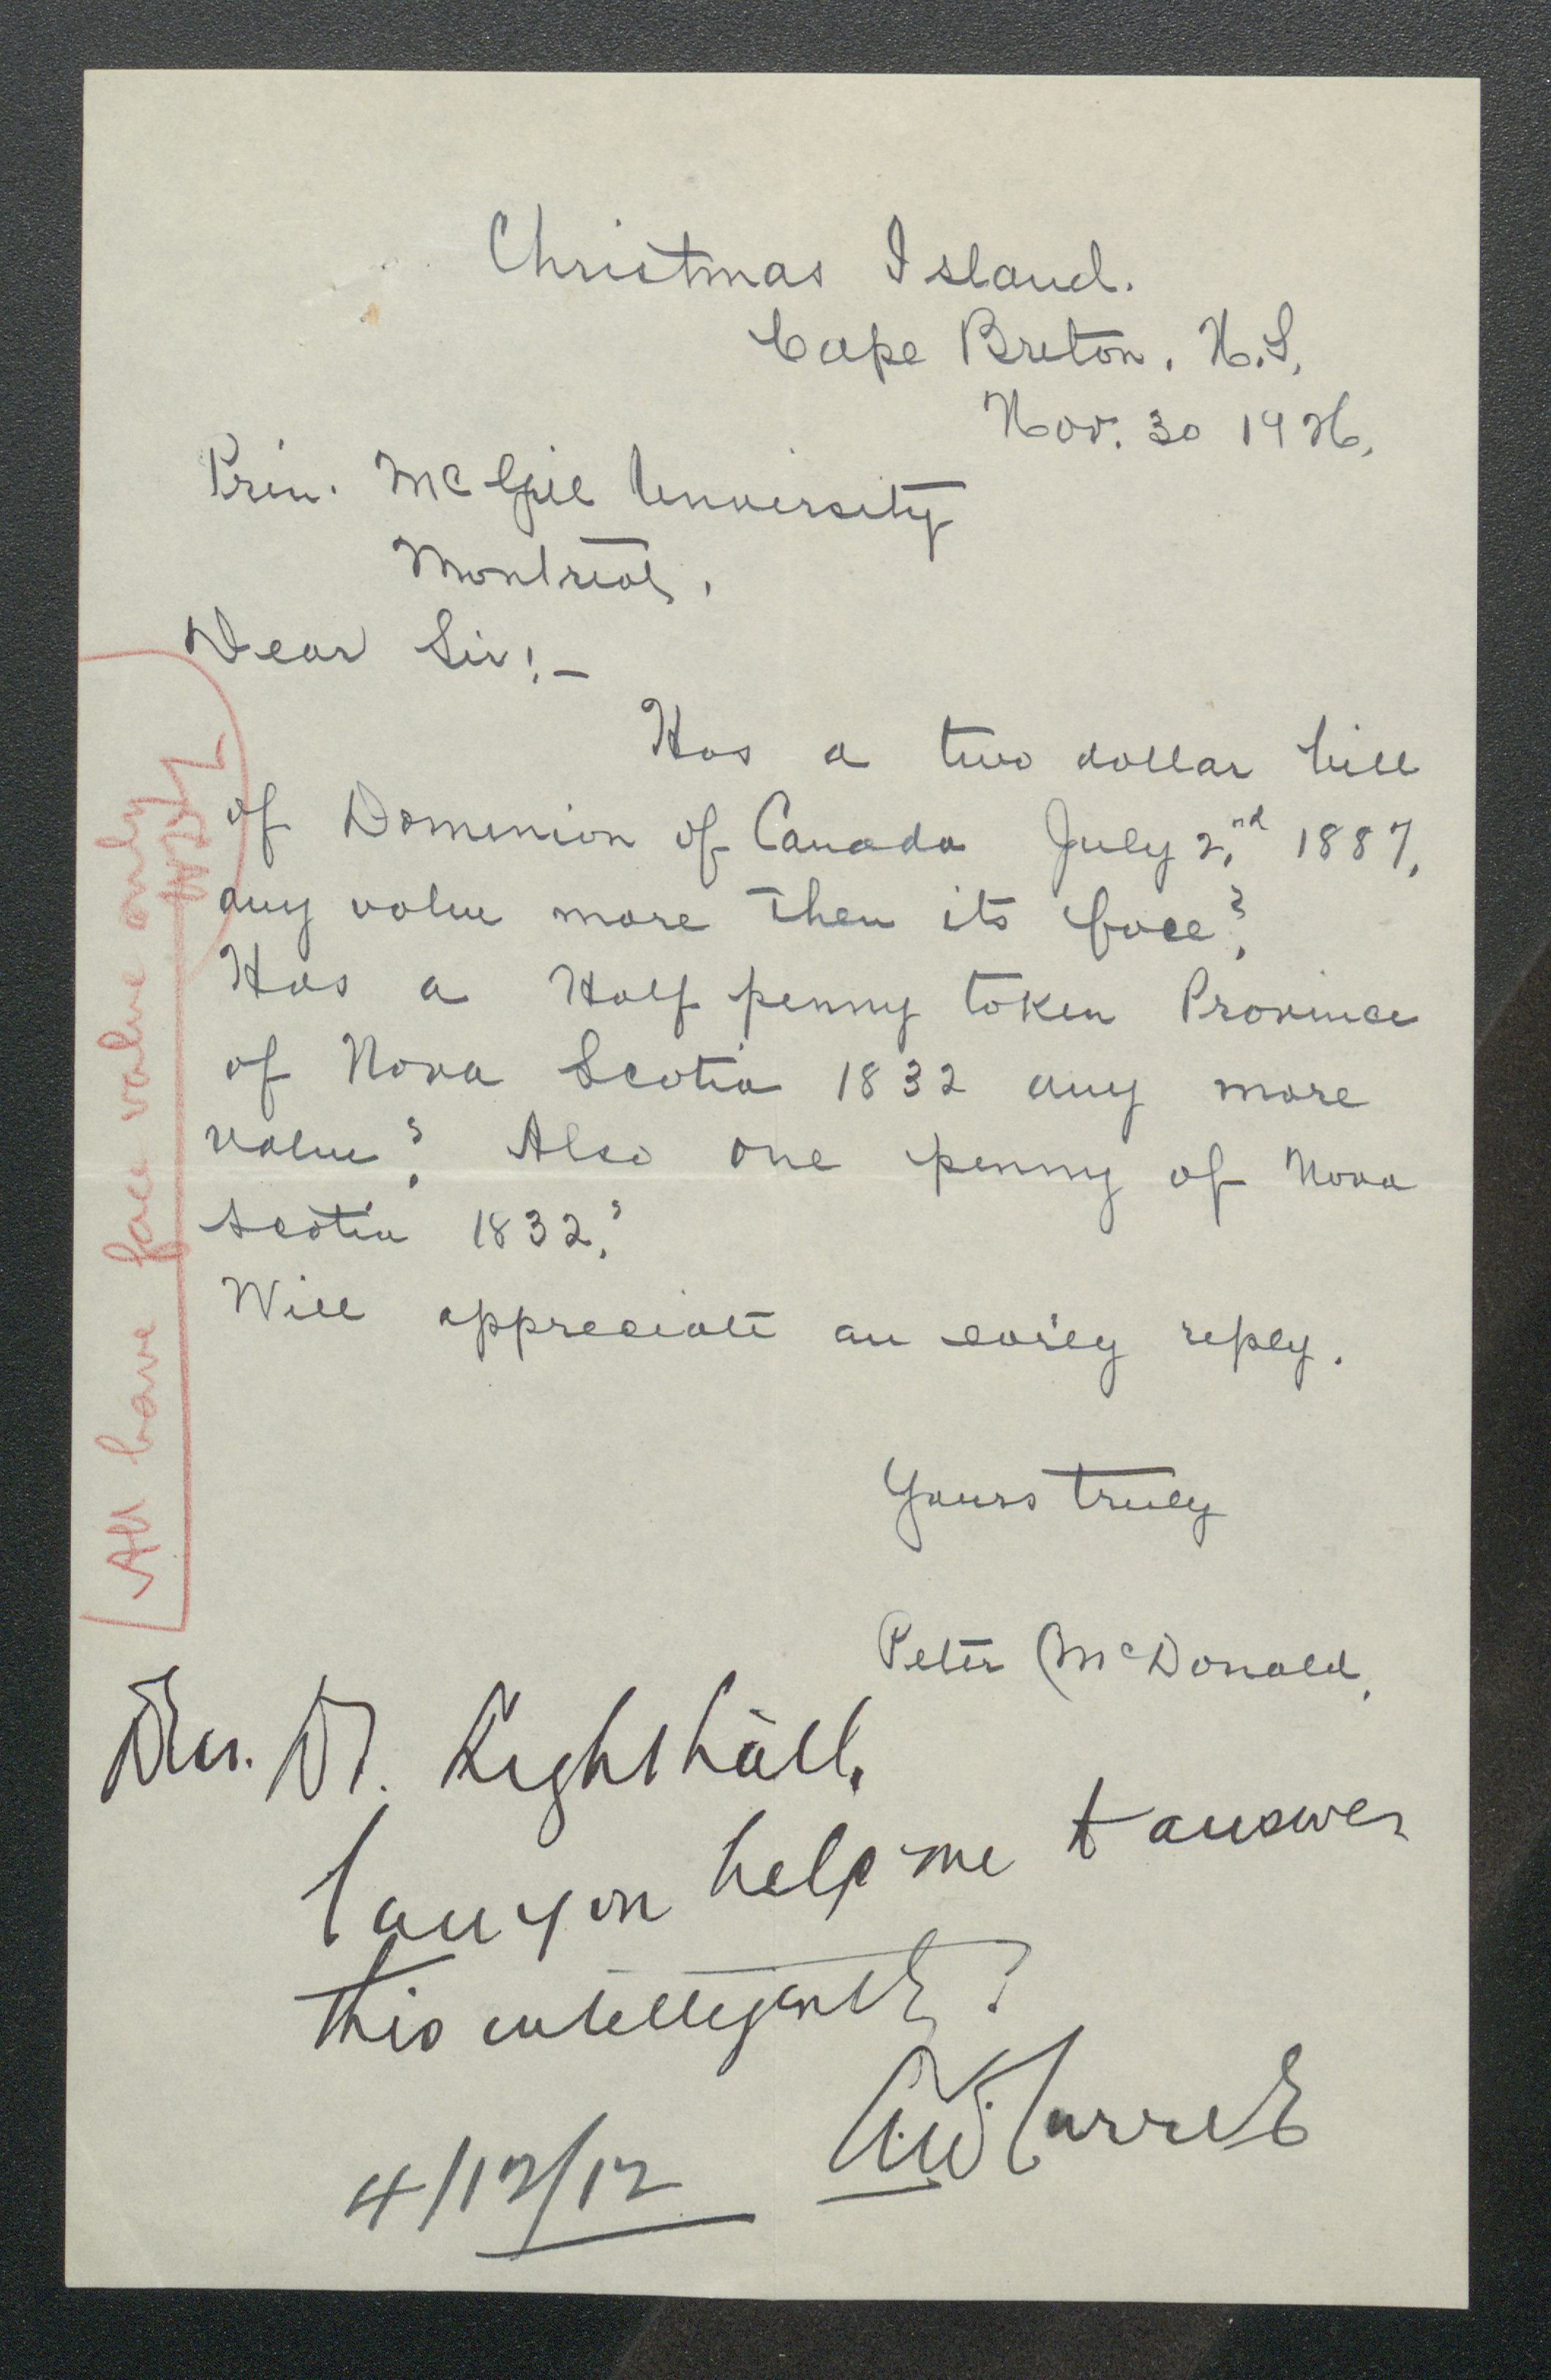 Christmas Island.
Cape Breton, N.S,
Nov. 30 1926,
Prin. McGill University
Montreal,
Dear Sir:-
Has a two dollar bill
of Dominion of Canada July 2,nd 1887,
any value more then its face?
Has a Half penny token Province
of Nova Scotia 1832 any more
value? Also one penny of Nova
Scotia 1832?
Will appreciate an early reply.
Yours truly
Peter McDonald,
All have face value only
WDL
Dear Dr. Lighthall,
Can you help me to answer
this intelligently?
A.W. Currie
4/12/